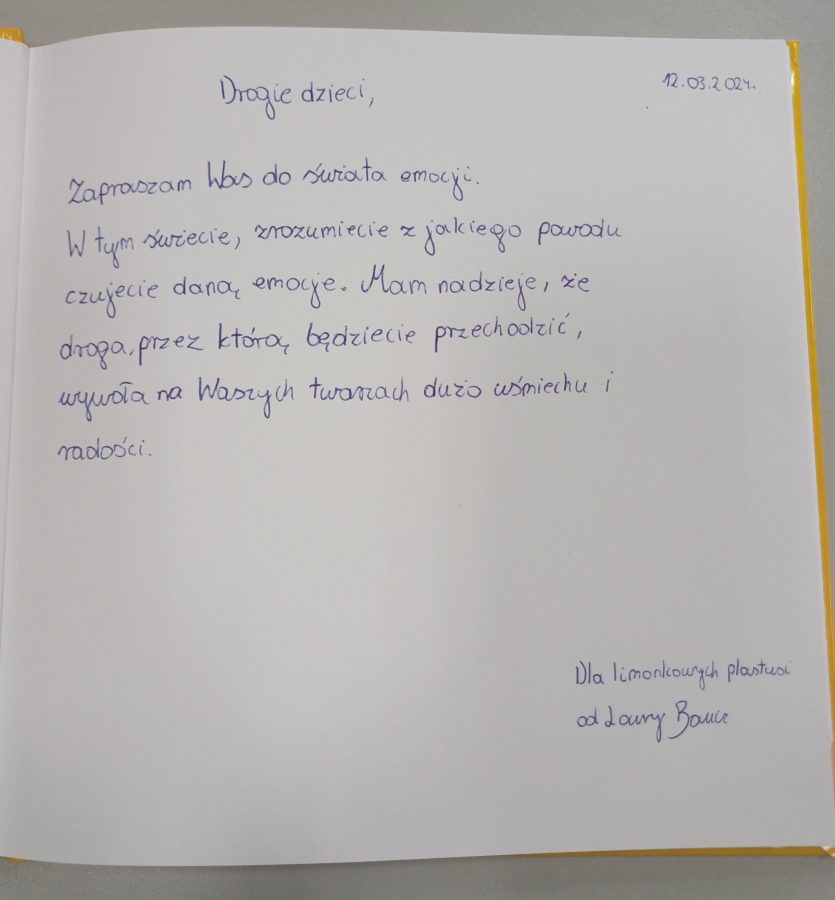 Drogie dzieci,
12.03.2024r.
Zapraszam Was do świata emocji.
W tym świecie, zrozumiecie z jakiego powodu
czujecie daną emocje. Mam nadzieje, że
droga, przez którą będziecie przechodzić,
wywoła na Waszych twarzach dużo uśmiechu i
radości.
Dla limonkowych plastusi
od Laury